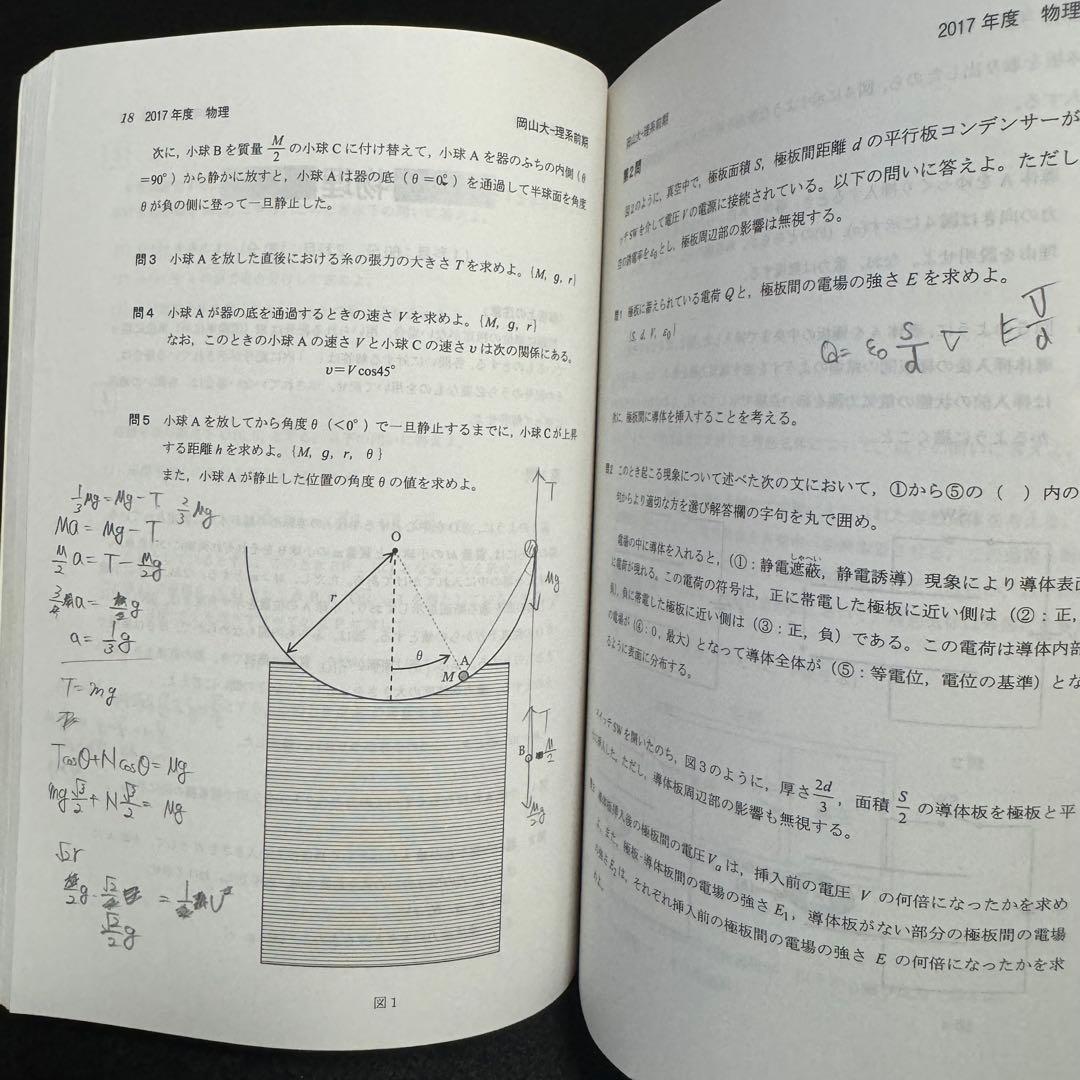 18 2017年度 物理
岡山大-理系前期
次に，小球Bを質量 M/2 の小球Cに付け替えて，小球Aを器のふちの内側（θ
=90°）から静かに放すと，小球Aは器の底（θ=0°）を通過して半球面を角度
θが負の側に登って一旦静止した。
問3 小球Aを放した直後における糸の張力の大きさTを求めよ。{M, g, r}
問4 小球Aが器の底を通過するときの速さVを求めよ。{M, g, r}
なお，このときの小球Aの速さVと小球Cの速さυは次の関係にある。
υ=V cos45°
問5 小球Aを放してから角度θ（<0°）で一旦静止するまでに，小球Cが上昇
する距離hを求めよ。{M, g, r, θ}
また，小球Aが静止した位置の角度θの値を求めよ。
1/3 Mg = Mg - T 2/3 Mg
Ma = Mg - T
M/2 a = T - M/2 g
a = 1/3 g
T = mg
Tcosθ+Ncosθ = Mg
mg √3/2 + N √3/2 = Mg
√2r
√2/2 g
O
r
θ
A
M
T
Mg
T
B
M/2
Mg/2
図1
2017年度 物理
岡山大-理系前期
第2問
図2のように，真空中で，極板面積S，極板間距離dの平行板コンデンサーが
ッチSWを介して電圧Vの電源に接続されている。以下の問いに答えよ。ただし
空の誘電率をε0とし，極板周辺部の影響は無視する。
問1 極板に蓄えられている電荷Qと，極板間の電場の強さEを求めよ。
{S, d, V, ε0}
Q= ε0 S/d V E V/d
次に，極板間に導体を挿入することを考える。
問2 このとき起こる現象について述べた次の文において，①から⑤の（ ）内の
句からより適切な方を選び解答欄の字句を丸で囲め。
電場の中に導体を入れると，（①：静電遮蔽，静電誘導）現象により導体表面
しゃへい
に電荷が現れる。この電荷の符号は，正に帯電した極板に近い側は（②：正，
負），負に帯電した極板に近い側は（③：正，負）である。この電荷は導体内部
の電場が（④：0，最大）となって導体全体が（⑤：等電位，電位の基準）とな
るように表面に分布する。
スイッチSWを開いたのち，図3のように，厚さ 2d/3，面積 S/2 の導体板を極板と平
に挿入した。ただし，導体板周辺部の影響も無視する。
問3 導体板挿入後の極板間の電圧Vaは，挿入前の電圧 V の何倍になったかを求め
よ。また，極板-導体板間の電場の強さE1，導体板がない部分の極板間の電場
の強さE2は，それぞれ挿入前の極板間の電場の強さ E の何倍になったかを求
めよ。